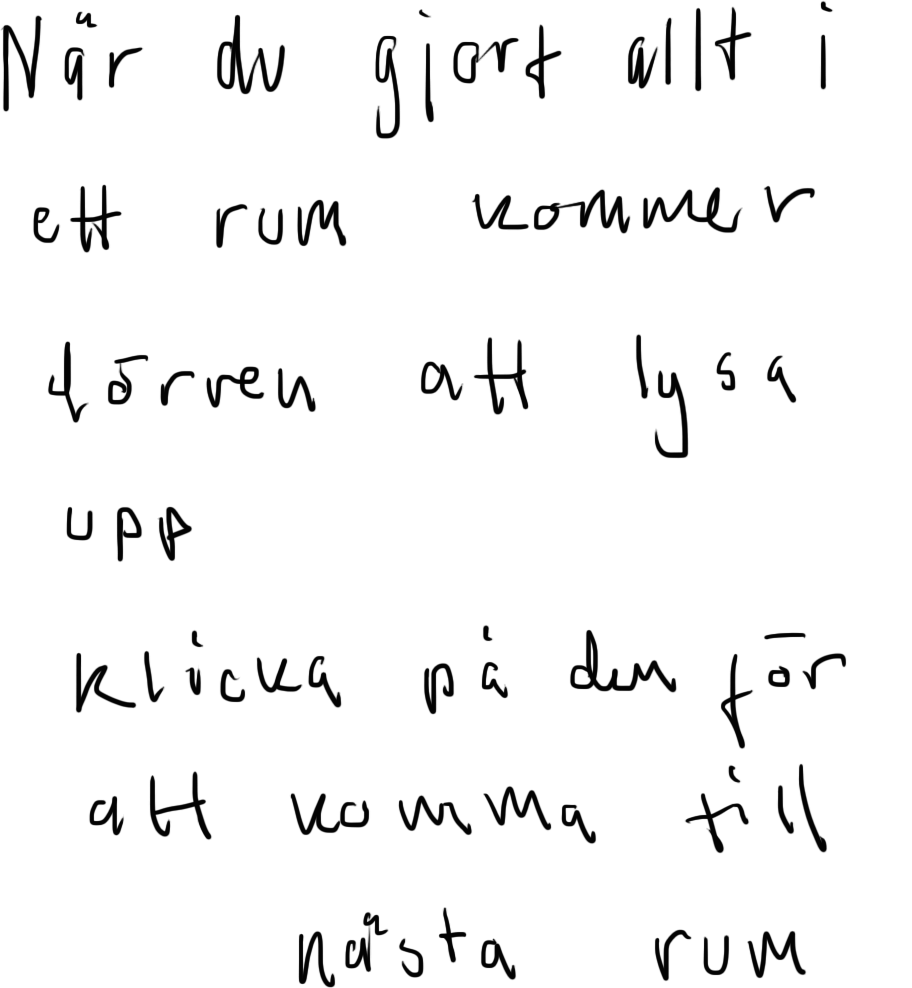 När du gjort allt i
ett rum kommer
dörren att lysa
upp
klicka på den för
att komma till
nästa rum